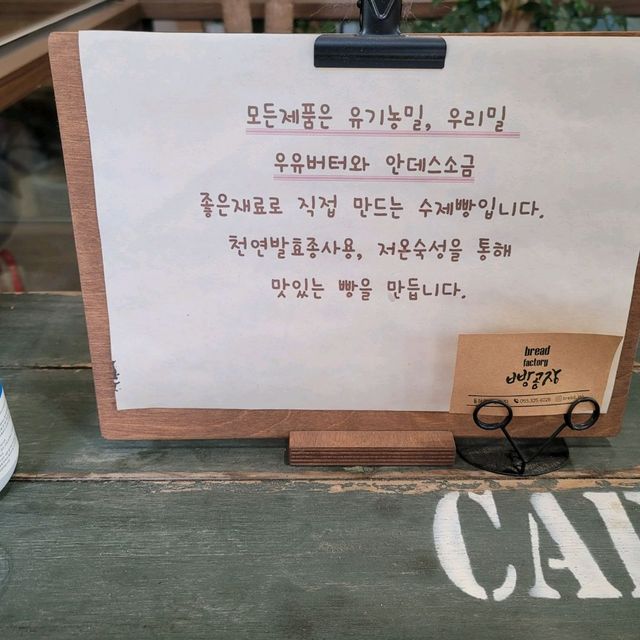 모든제품은 유기농밀, 우리밀
우유버터와 안데스소금
좋은재료로 직접 만드는 수제빵입니다.
천연발효종사용, 저온숙성을 통해
맛있는 빵을 만듭니다.
bread
factory
빵공장
CA